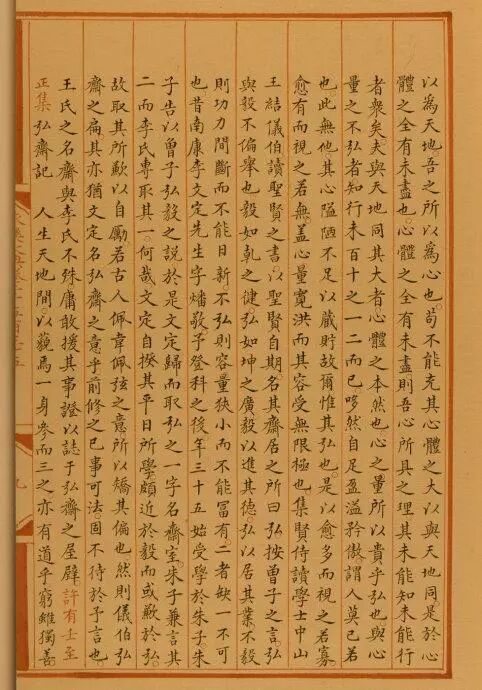 以為天地。吾之所以為心也。苟不能充其心體之大以與天地同。是於心
體之全有未盡也。心體之全有未盡則吾心所具之理其未能知未能行
者衆矣。夫與天地同其大者心體之本然也心之量所以貴乎弘也與心
量之不弘者知行未百十之一二而已哆然自足盈溢矜傲謂人莫己若
也。此無他其心隘陋不足以藏貯故爾惟其弘也。是以愈多而視之若寡
愈有而視之若無。盖心量寬洪而其容受無限極也集賢侍讀學士中山
王結儀伯讀聖賢之書。以聖賢自期名其齋居之所曰弘按曾子之言弘
與毅不偏舉也毅如乾之健弘如坤之廣毅以進其德弘以居其業不毅
則功力間斷而不能日新。不弘則容量狹小而不能冨有。二者缺一不可
也昔南康李文定先生字燔敬子登科之後年三十五始受學於朱子朱
子告以曾子弘毅之說於是文定歸而取弘之一字名齋室。朱子兼言其
二而李氏專取其一。何哉文定自揆其平日所學頗近於毅而或歉於弘。
故取其所歉以自勵。若古人佩韋佩弦之意所以矯其偏也然則儀伯弘
齋之扁其亦猶文定名弘齋之意乎前修之已事可法固不待於予言也。
王氏之名齋與李氏不殊庸敢援其事證以誌于弘齋之屋壁許有壬至
正集弘齋記 人生天地間。以藐焉一身參而三之亦有道乎窮雖獨善